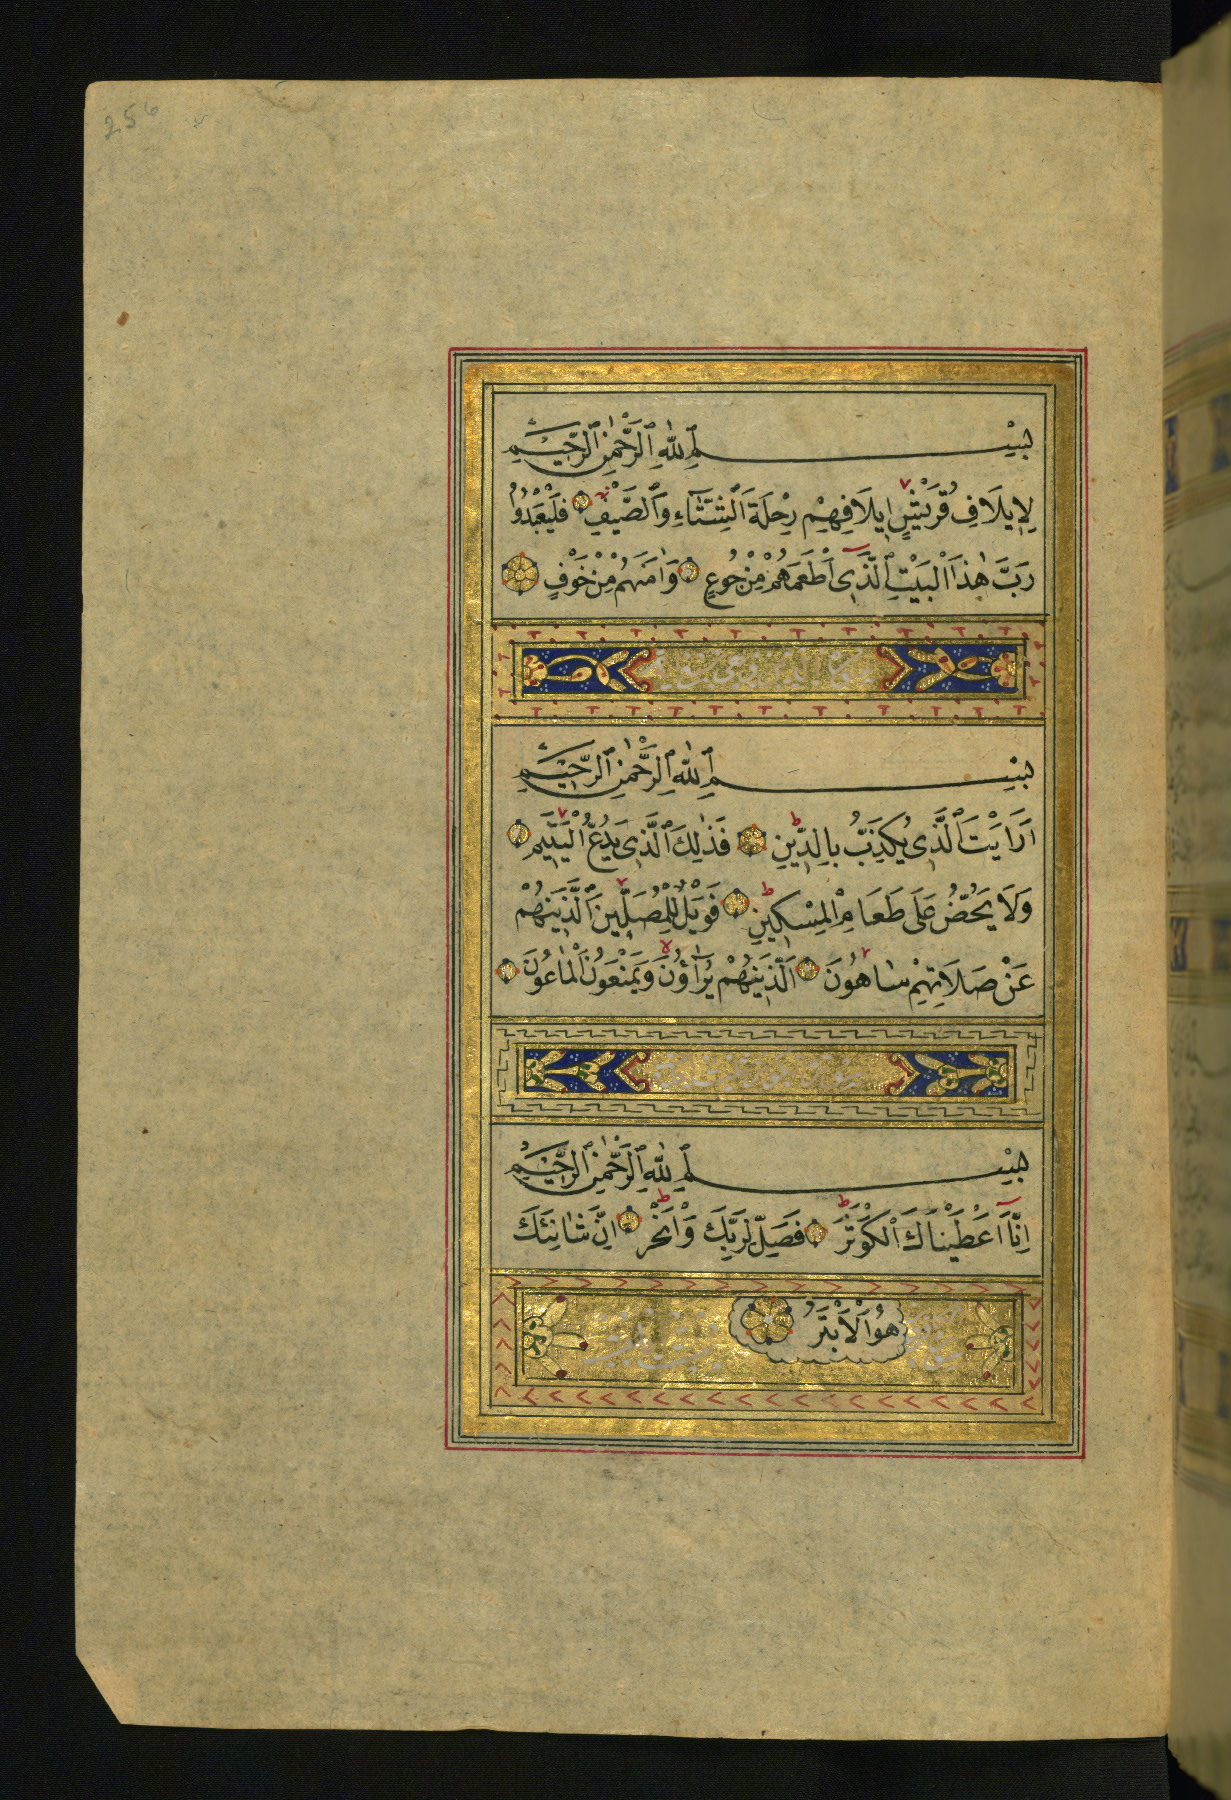 256
بِسْمِ ٱللّٰهِ ٱلرَّحْمٰنِ ٱلرَّحِيْمِ
لِاِيلَافِ قُرَيْشٍ اِيلَافِهِمْ رِحْلَةَ ٱلشِّتَآءِ وَٱلصَّيْفِ فَلْيَعْبُدُوْا
رَبَّ هٰذَا ٱلْبَيْتِ ٱلَّذِىٓ اَطْعَمَهُمْ مِنْ جُوْعٍ وَاٰمَنَهُمْ مِنْ خَوْفٍ
بِسْمِ ٱللّٰهِ ٱلرَّحْمٰنِ ٱلرَّحِيْمِ
اَرَاَيْتَ ٱلَّذِى يُكَذِّبُ بِالدِّيْنِ فَذٰلِكَ ٱلَّذِى يَدُعُّ ٱلْيَتِيْمَ
وَلَا يَحُضُّ عَلٰى طَعَامِ ٱلْمِسْكِيْنِ فَوَيْلٌ لِلْمُصَلِّيْنَ ٱلَّذِيْنَ هُمْ
عَنْ صَلَاتِهِمْ سَاهُوْنَ اَلَّذِيْنَ هُمْ يُرَآؤُنَ وَيَمْنَعُوْنَ ٱلْمَاعُوْنَ
بِسْمِ ٱللّٰهِ ٱلرَّحْمٰنِ ٱلرَّحِيْمِ
اِنَّآ اَعْطَيْنَاكَ ٱلْكَوْثَرَ فَصَلِّ لِرَبِّكَ وَٱنْحَرْ اِنَّ شَانِئَكَ
هُوَ ٱلْاَبْتَرُ